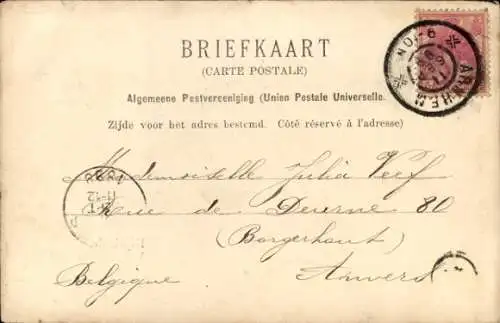 BRIEFKAART
(CARTE POSTALE)
Algemeene Postvereeniging (Union Postale Universelle.
Zijde voor het adres bestemd. Côté réservé à l'adresse)
ARNHEM
Mademoiselle Julia Veef
Rue de Deurne 80
(Borgerhout)
Anvers
Belgique
11-12